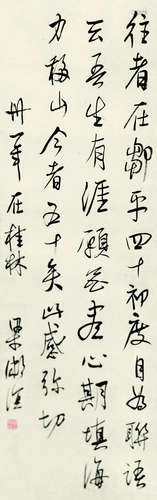 往者在鄒平四十初度自为聯語
云吾生有涯願无盡心期填海
力移山今者五十矣此感弥切
卅一年在桂林 梁漱溟